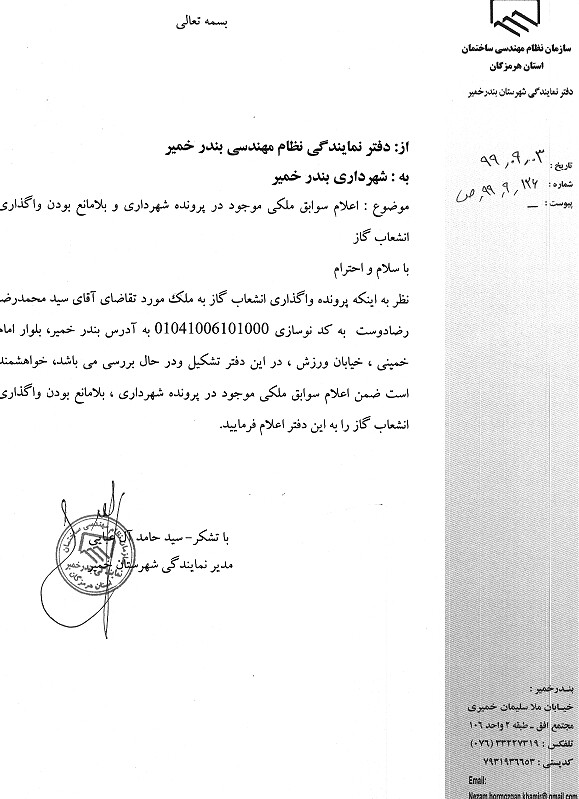 بسمه تعالی
سازمان نظام مهندسی ساختمان
استان هرمزگان
دفتر نمایندگی شهرستان بندرخمیر
تاریخ : ۹۹,۰۹,۰۳
شماره : ۱۲۶ , ۹ , ۹۹ , ص
پیوست : –
از: دفتر نمایندگی نظام مهندسی بندر خمیر
به : شهرداری بندر خمیر
موضوع : اعلام سوابق ملکی موجود در پرونده شهرداری و بلامانع بودن واگذاری
انشعاب گاز
با سلام و احترام
نظر به اینکه پرونده واگذاری انشعاب گاز به ملک مورد تقاضای آقای سید محمدرضا
رضادوست به کد نوسازی 01041006101000 به آدرس بندر خمیر، بلوار امام
خمینی ، خیابان ورزش ، در این دفتر تشکیل ودر حال بررسی می باشد، خواهشمند
است ضمن اعلام سوابق ملکی موجود در پرونده شهرداری ، بلامانع بودن واگذاری
انشعاب گاز را به این دفتر اعلام فرمایید.
با تشکر – سید حامد آل عبایی
مدیر نمایندگی شهرستان خمیر
سازمان نظام مهندسی ساختمان
نمایندگی بندرخمیر
استان هرمزگان
بندرخمیر :
خیابان ملا سلیمان خمیری
مجتمع افق ـ طبقه ۲ واحد ۱۰۶
تلفکس : ۳۳۲۲۷۳۱۹ (۰۷۶)
کدپستی : ۷۹۳۱۹۳۶۶۵۳
Email:
Nezam.hormozgan.khamir@gmail.com